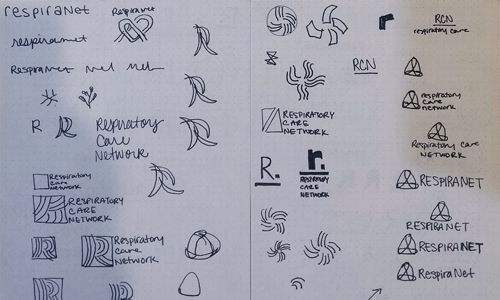 respiraNet
Respiranet
respiranet
Respiranet net net
R
Respiratory
Care
Network
Respiratory
Care
Network
RESPIRATORY
CARE
NETWORK
Respiratory
Care
Network
r
RCN
respiratory care
RCN
respiratory
care
network
RESPIRATORY
CARE
NETWORK
Respiratory Care
NETWORK
R.
r.
RESPIRATORY
CARE
NETWORK
RESPIRANET
RESPIRANET
RESPIRANET
RespiraNet